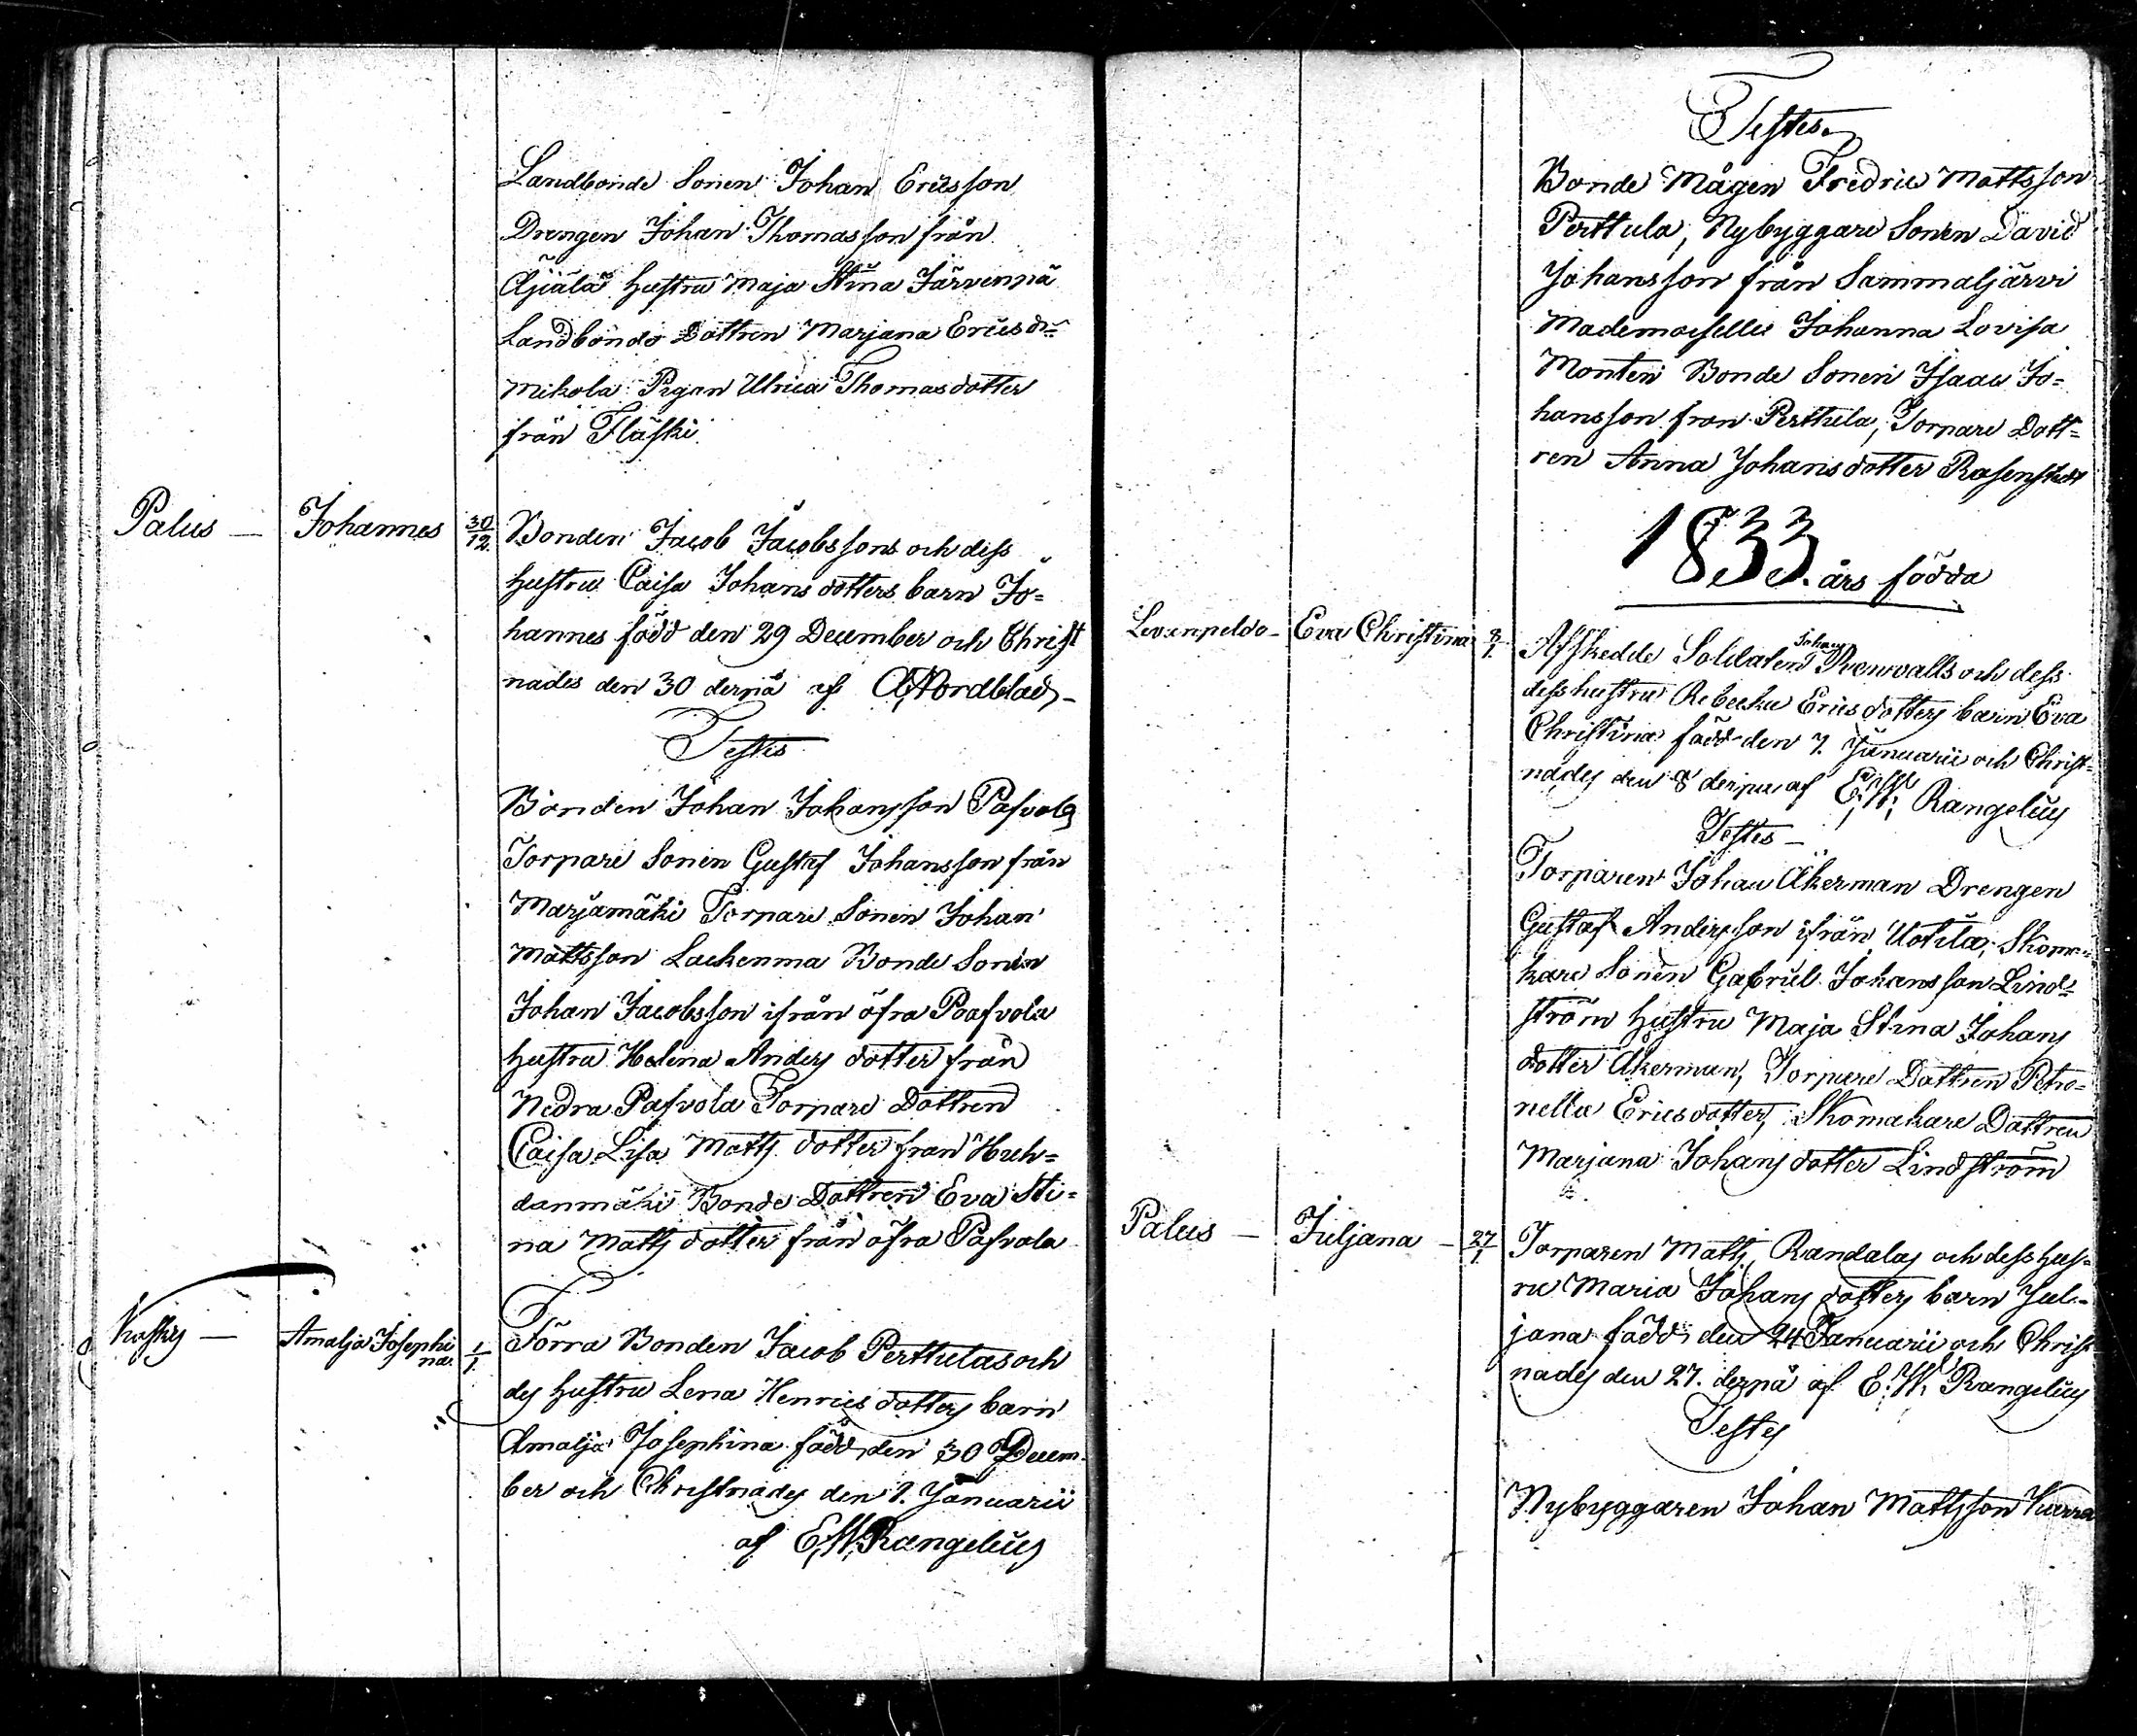 Landbonde Sonen Johan Ericsson
Drengen Johan Thomasson från
Äijälä Hustru Maja Stina Järvenpä
Landbonde Dottren Marjana Ericsdr
Mikola Pigan Ulrica Thomasdotter
från Fläski
Palus — Johannes 30/12 Bonden Jacob Jacobssons och diss
hustru Caisa Johans dotters barn Jo=
hannes född den 29 December och Christ
nades den 30 dernä af Nordblad
Testes
Bonden Johan Johansson Pasvola
Torpare Sonen Gustaf Johansson från
Marjamäki Torpare Sonen Johan
Mattsson Bonde Sonen
Johan Jacobsson ifrån öfra Paasvola
hustru Helena Anders dotter från
Nedra Pasvola Torpare Dottren
Caisa Lisa Matts dotter fran Huh=
danmäki Bonde Dottren Eva Sti=
na Matts dotter från öfra Pasvola
Koskis — Amalja Josephi
na 1/1 Förra Bonden Jacob Perttulas och
des hustru Lena Henrics dotters barn
Amalja Josephina född den 30 Decem=
ber och Christnades den 1. Januarii
af E. W. Rangelius
Testes
Bonde Mågen Fredric Mattsson
Perttula, Nybyggare Sonen David
Johansson från Sammaljärvi
Mademoiselle Johanna Lovisa
Montén Bonde Sonen Isaac Jo=
hansson fron Perttula, Torpare Dott=
ren Anna Johans dotter Rosenstedt
1833. års födda
Levanpeldo — Eva Christina 8/1 Afskedde Soldaten Johan och dess
dess hustru Rebecka Erics dotters barn Eva
Christina född den 7. Januarii och Christ=
nades den 8 af E. W. Rangelius
Testes —
Torparen Johan Åkerman Drengen
Gustaf Andersson ifrån Uotila, Skoma=
kare Sonen Gabriel Johansson Lind=
ström Hustru Maja Stina Johans
dotter Åkerman, Torpare Dottren Petro=
nella Ericsdotter, Skomakare Dottren
Marjana Johans dotter Lindström
Palus — Juljana — 27/1 Torparen Matts Randalas och dess hus=
ru Maria Johans dotters barn Jul=
jana född den 24 Januarii och Christ
nades den 27. dernä af E. W. Rangelius
Testes
Nybyggaren Johan Mattsson Kurra